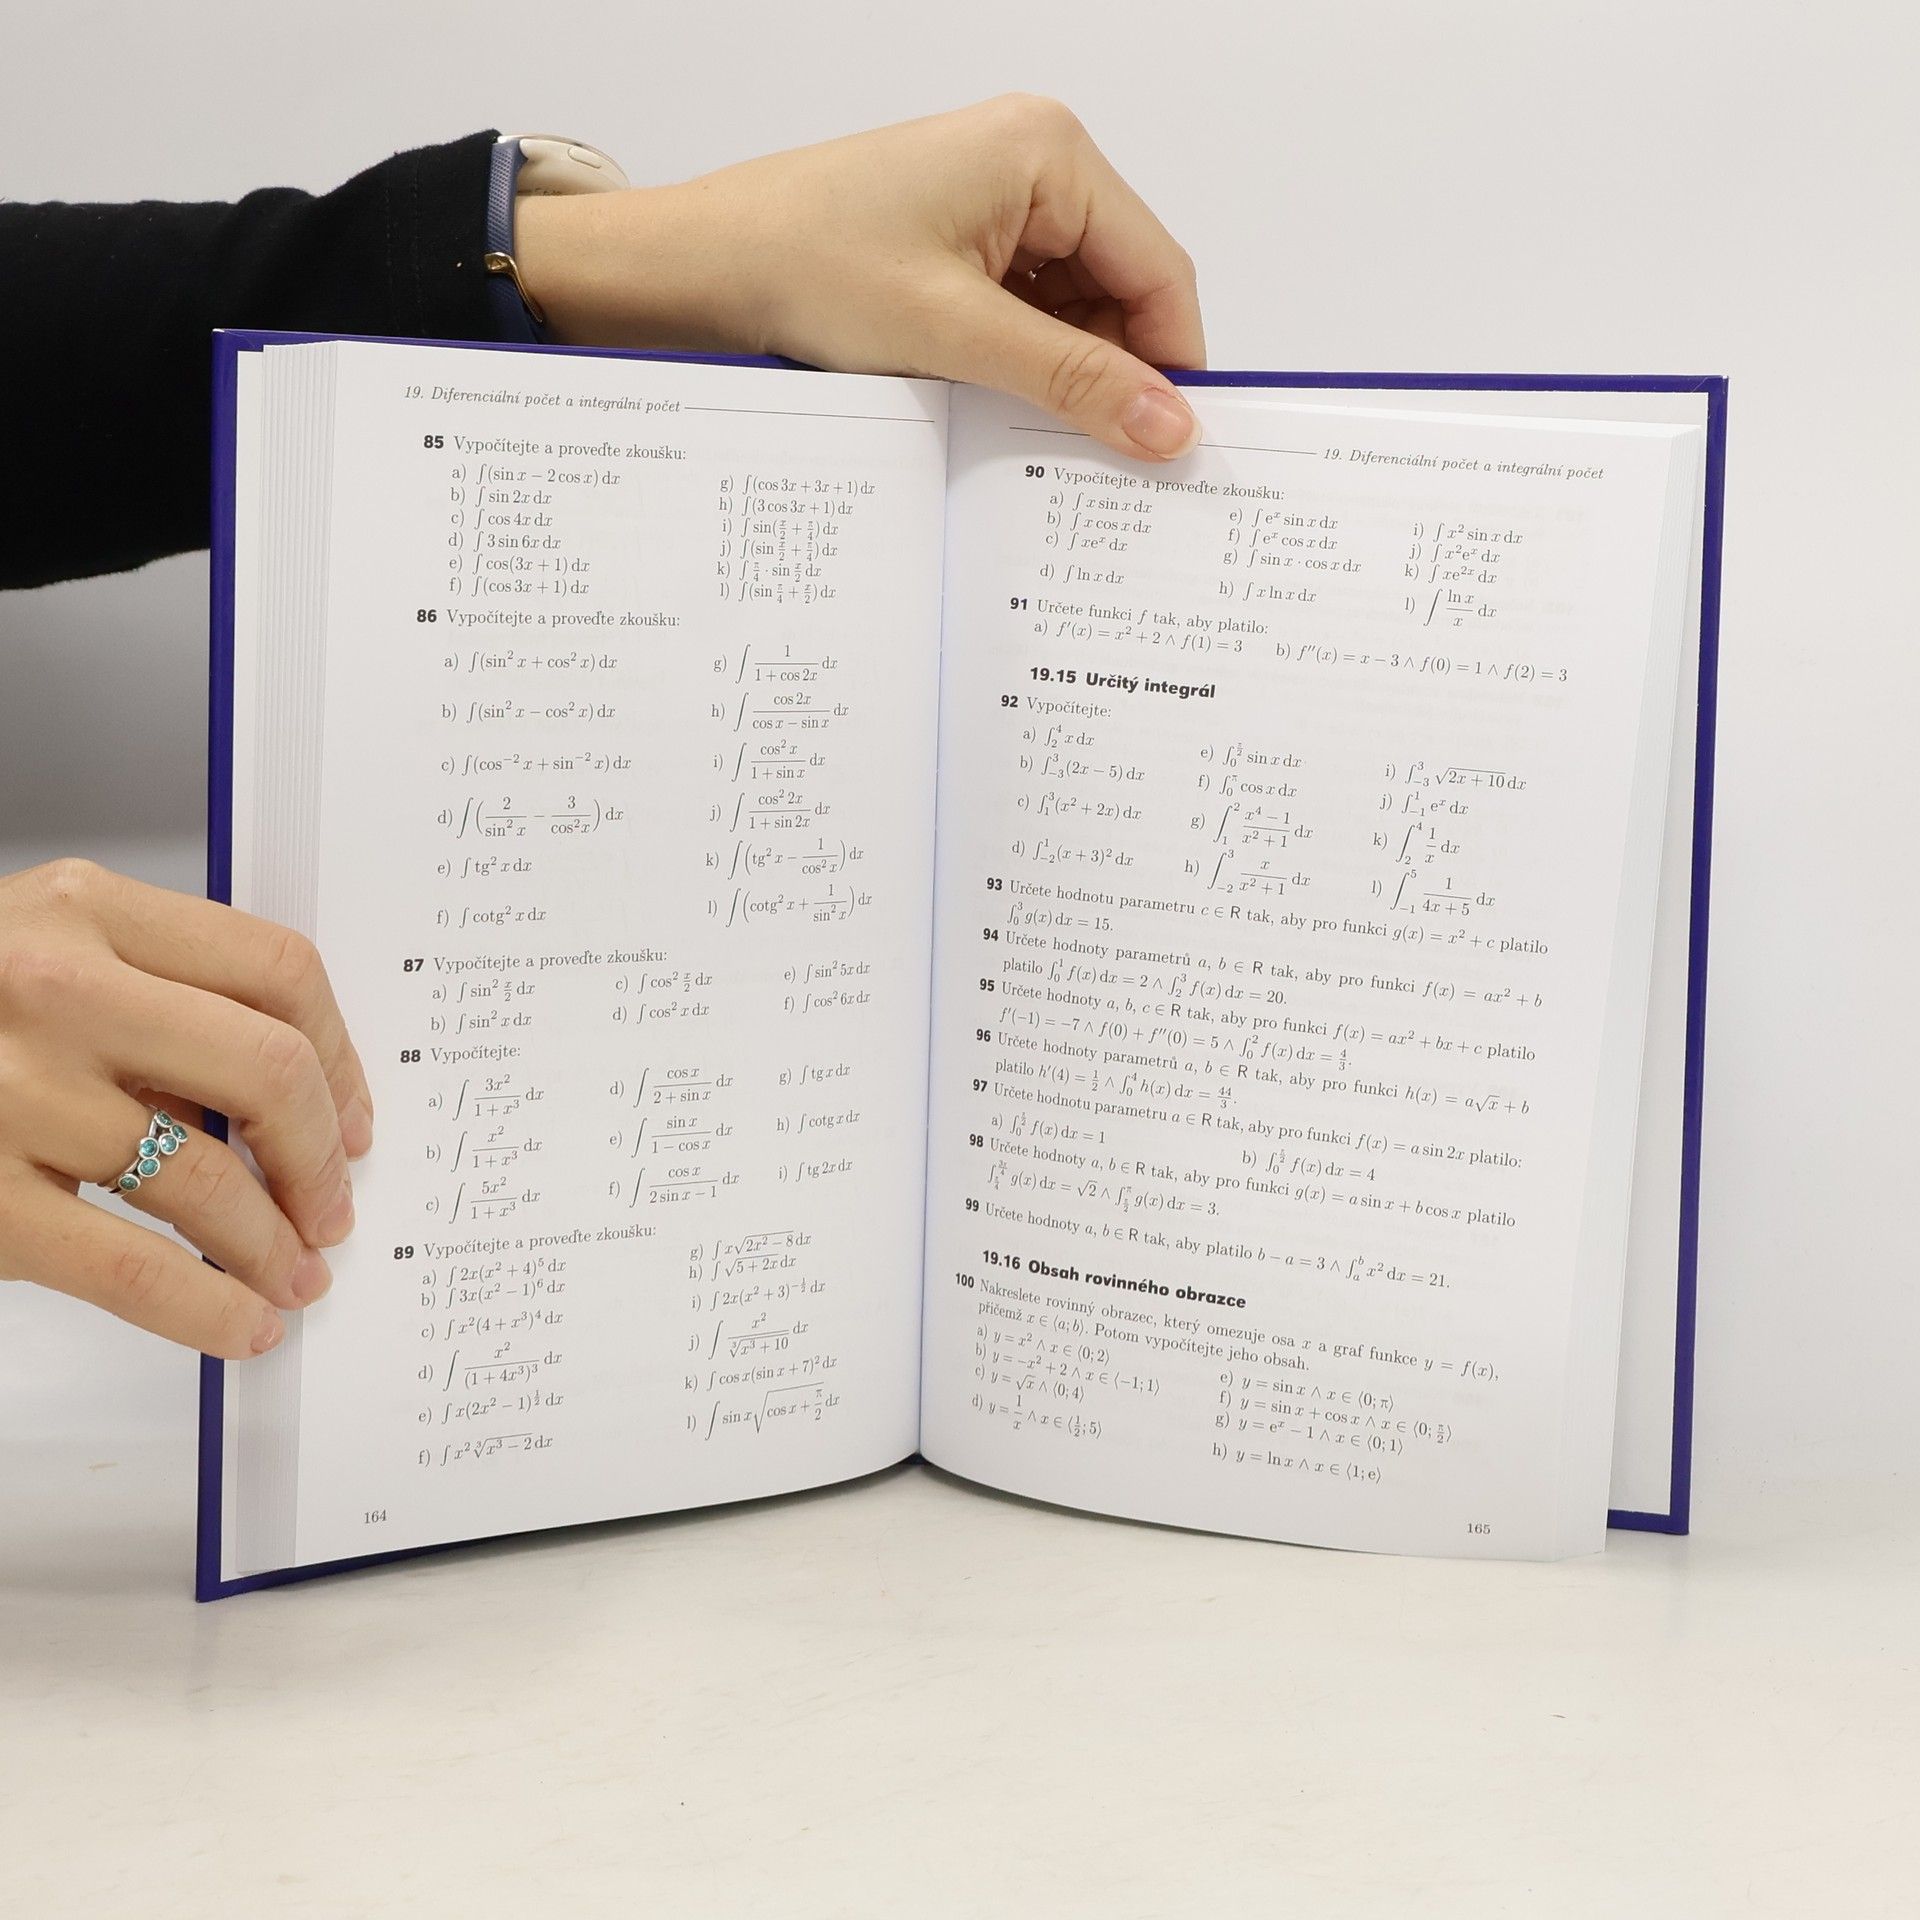 19. Diferenciální počet a integrální počet
85 Vypočítejte a proveďte zkoušku:
a) ∫(sin x − 2 cos x) dx
b) ∫ sin 2x dx
c) ∫ cos 4x dx
d) ∫ 3 sin 6x dx
e) ∫ cos(3x + 1) dx
f) ∫(cos 3x + 1) dx
g) ∫(cos 3x + 3x + 1) dx
h) ∫(3 cos 3x + 1) dx
i) ∫ sin(x/2 + π/4) dx
j) ∫(sin x/2 + π/4) dx
k) ∫ π/4 · sin x/2 dx
l) ∫(sin π/4 + x/2) dx
86 Vypočítejte a proveďte zkoušku:
a) ∫(sin² x + cos² x) dx
b) ∫(sin² x − cos² x) dx
c) ∫(cos⁻² x + sin⁻² x) dx
d) ∫(2/sin² x − 3/cos² x) dx
e) ∫ tg² x dx
f) ∫ cotg² x dx
g) ∫ 1/(1 + cos 2x) dx
h) ∫ cos 2x/(cos x − sin x) dx
i) ∫ cos² x/(1 + sin x) dx
j) ∫ cos² 2x/(1 + sin 2x) dx
k) ∫(tg² x − 1/cos² x) dx
l) ∫(cotg² x + 1/sin² x) dx
87 Vypočítejte a proveďte zkoušku:
a) ∫ sin² x/2 dx
b) ∫ sin² x dx
c) ∫ cos² x/2 dx
d) ∫ cos² x dx
e) ∫ sin² 5x dx
f) ∫ cos² 6x dx
88 Vypočítejte:
a) ∫ 3x²/(1 + x³) dx
b) ∫ x²/(1 + x³) dx
c) ∫ 5x²/(1 + x³) dx
d) ∫ cos x/(2 + sin x) dx
e) ∫ sin x/(1 − cos x) dx
f) ∫ cos x/(2 sin x − 1) dx
g) ∫ tg x dx
h) ∫ cotg x dx
i) ∫ tg 2x dx
89 Vypočítejte a proveďte zkoušku:
a) ∫ 2x(x² + 4)⁵ dx
b) ∫ 3x(x² − 1)⁶ dx
c) ∫ x²(4 + x³)⁴ dx
d) ∫ x²/(1 + 4x³)³ dx
e) ∫ x(2x² − 1)^(1/2) dx
f) ∫ x² ∛(x³ − 2) dx
g) ∫ x√(2x² − 8) dx
h) ∫ √(5 + 2x) dx
i) ∫ 2x(x² + 3)^(−1/2) dx
j) ∫ x²/∛(x³ + 10) dx
k) ∫ cos x(sin x + 7)² dx
l) ∫ sin x√(cos x + π/2) dx
164
19. Diferenciální počet a integrální počet
90 Vypočítejte a proveďte zkoušku:
a) ∫ x sin x dx
b) ∫ x cos x dx
c) ∫ xeˣ dx
d) ∫ ln x dx
e) ∫ eˣ sin x dx
f) ∫ eˣ cos x dx
g) ∫ sin x · cos x dx
h) ∫ x ln x dx
i) ∫ x² sin x dx
j) ∫ x²eˣ dx
k) ∫ xe²ˣ dx
l) ∫ ln x/x dx
91 Určete funkci f tak, aby platilo:
a) f′(x) = x² + 2 ∧ f(1) = 3 b) f″(x) = x − 3 ∧ f(0) = 1 ∧ f(2) = 3
19.15 Určitý integrál
92 Vypočítejte:
a) ∫₂⁴ x dx
b) ∫₋₃³ (2x − 5) dx
c) ∫₁³ (x² + 2x) dx
d) ∫₋₂¹ (x + 3)² dx
e) ∫₀^(π/2) sin x dx
f) ∫₀^π cos x dx
g) ∫₁² (x⁴ − 1)/(x² + 1) dx
h) ∫₋₂³ x/(x² + 1) dx
i) ∫₋₃³ √(2x + 10) dx
j) ∫₋₁¹ eˣ dx
k) ∫₂⁴ 1/x dx
l) ∫₋₁⁵ 1/(4x + 5) dx
93 Určete hodnotu parametru c ∈ R tak, aby pro funkci g(x) = x² + c platilo
∫₀³ g(x) dx = 15.
94 Určete hodnoty parametrů a, b ∈ R tak, aby pro funkci f(x) = ax² + b
platilo ∫₀¹ f(x) dx = 2 ∧ ∫₂³ f(x) dx = 20.
95 Určete hodnoty a, b, c ∈ R tak, aby pro funkci f(x) = ax² + bx + c platilo
f′(−1) = −7 ∧ f(0) + f″(0) = 5 ∧ ∫₀² f(x) dx = 4/3.
96 Určete hodnoty parametrů a, b ∈ R tak, aby pro funkci h(x) = a√x + b
platilo h′(4) = 1/2 ∧ ∫₀⁴ h(x) dx = 44/3.
97 Určete hodnotu parametru a ∈ R tak, aby pro funkci f(x) = a sin 2x platilo:
a) f(x) dx = 1
b) f(x) dx = 4
98 Určete hodnoty a, b ∈ R tak, aby pro funkci g(x) = a sin x + b cos x platilo
g(x) dx = √2 ∧ g(x) dx = 3.
99 Určete hodnoty a, b ∈ R tak, aby platilo b − a = 3 ∧ ∫ₐᵇ x² dx = 21.
19.16 Obsah rovinného obrazce
100 Nakreslete rovinný obrazec, který omezuje osa x a graf funkce y = f(x),
přičemž x ∈ ⟨a; b⟩. Potom vypočítejte jeho obsah.
a) y = x² ∧ x ∈ ⟨0; 2⟩
b) y = −x² + 2 ∧ x ∈ ⟨−1; 1⟩
c) y = √x ∧ ⟨0; 4⟩
d) y = 1/x ∧ x ∈ ⟨1/2; 5⟩
e) y = sin x ∧ x ∈ ⟨0; π⟩
f) y = sin x + cos x ∧ x ∈ ⟨0; π/2⟩
g) y = eˣ − 1 ∧ x ∈ ⟨0; 1⟩
h) y = ln x ∧ x ∈ ⟨1; e⟩
165